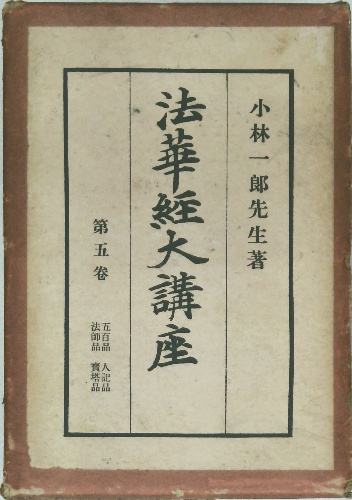 小林一郎先生著
法華經大講座
第五卷
五百品 人記品
法師品 寶塔品